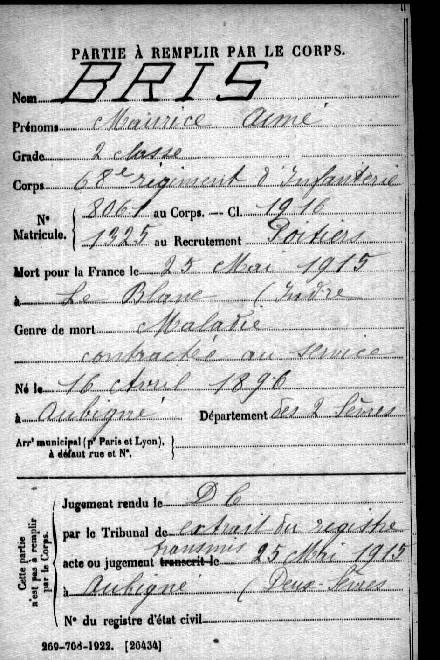 PARTIE À REMPLIR PAR LE CORPS.
Nom BRIS
Prénoms Maurice Aimé
Grade 2 classe
Corps 68e régiment d'Infanterie
N° Matricule. { 8061 au Corps. — Cl. 1916
1325 au Recrutement Poitiers
Mort pour la France le 25 Mai 1915
à Le Blanc (Indre
Genre de mort Maladie
contractée au service
Né le 16 Avril 1896
à Aubigné Département des 2 Sèvres
Arrt municipal (pr Paris et Lyon), à défaut rue et N°. }
Cette partie n'est pas à remplir par le Corps.
Jugement rendu le D C
par le Tribunal de extrait du registre
acte ou jugement transcrit le transmis 25 Mai 1915
à Aubigné (Deux-Sèvres
N° du registre d'état civil
269-708-1922. [26434]